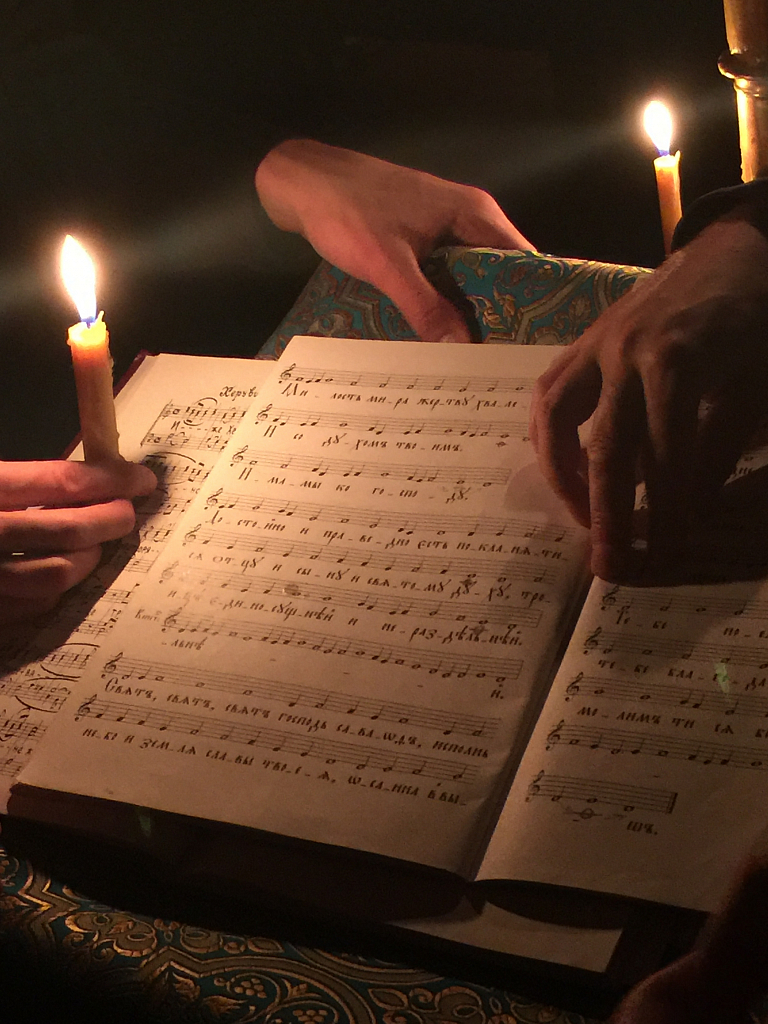 Херꙋв
Ми_лость ми_ра жер_твꙋ хва_ле_
И со дꙋ_хомъ тво_имъ.
И_ма_мы ко го_спо_дꙋ.
До_сто_йно и пра_ве_дно єсть по_кла_нѧ_ти_
сѧ от_цꙋ и сы_нꙋ и свѧ_то_мꙋ дꙋ_хꙋ, тро_
и_цѣ є_ди_но_сꙋщ_нѣй и не_раз_дѣль_нѣй.
Свѧтъ, свѧтъ, свѧтъ господь са_ва_ѡѳъ, исполнь
не_бо и зем_лѧ сла_вы тво_е_ѧ, ѡ_са_нна в вы_
Те_бе по_е_
те_бе бла_го_да
мо_лимъ ти сѧ бо
шъ.